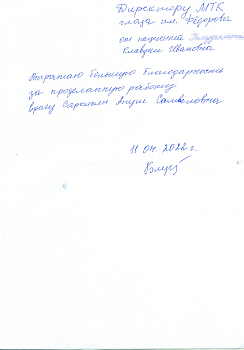 Директору МТК
глаза им. Фёдорова
от пациентки
Клавдии Ивановны
Выражаю большую благодарность
за проделанную работу
врачу Саркисян Ануш Самвеловна
11 04. 2022 г.